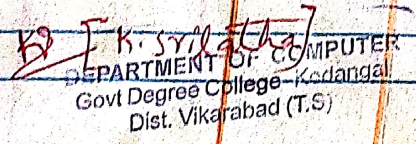 [K. Srilatha]
DEPARTMENT OF COMPUTER
Govt Degree College-Kodangal
Dist. Vikarabad (T.S)